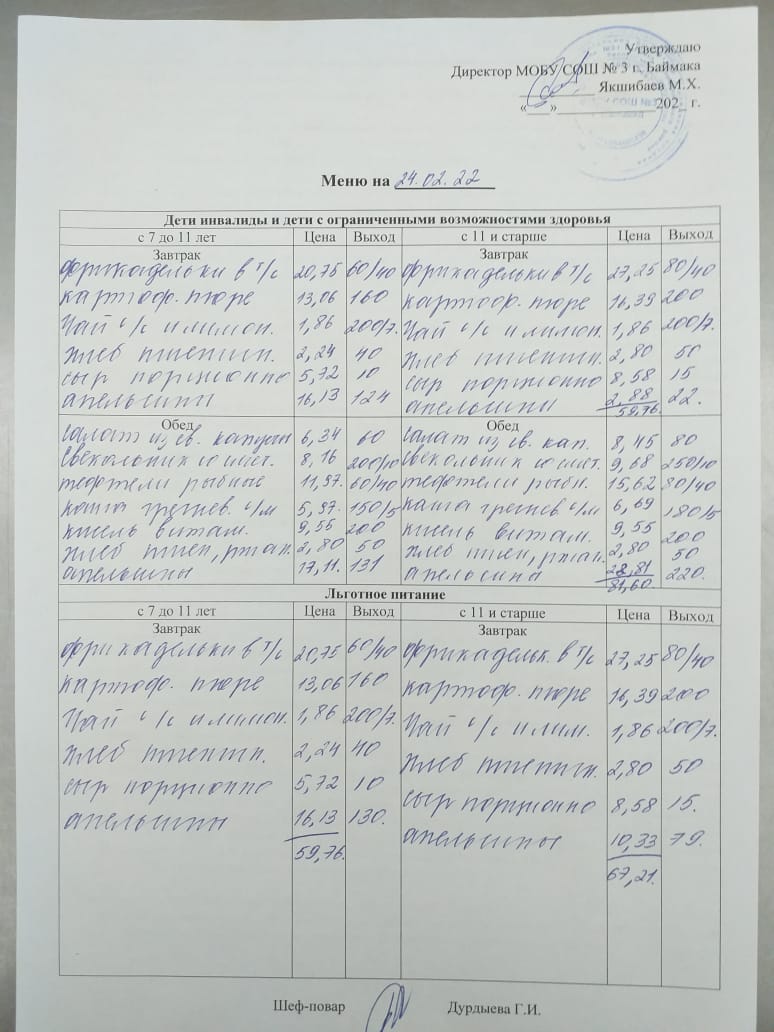 Утверждаю
Директор МОБУ СОШ № 3 г. Баймака
__________ Якшибаев М.Х.
«___»______________202_ г.
Меню на 24.02.22
Дети инвалиды и дети с ограниченными возможностями здоровья
с 7 до 11 лет Цена Выход с 11 и старше Цена Выход
Завтрак Завтрак
фрикадельки в т/с 20,75 60/40 фрикадельки в т/с 27,25 80/40
картоф. пюре 13,06 160 картоф. пюре 16,39 200
Чай с/с и лимон. 1,86 200/7. Чай с/с и лимон. 1,86 200/7.
хлеб пшеничн. 2,24 40 хлеб пшеничн. 2,80 50
сыр порционно 5,72 10 сыр порционно 8,58 15
апельсины 16,13 124 апельсины 2,88 22.
59,76.
Обед Обед
Салат из св. капусты 6,34 60 Салат из св. кап. 8,45 80
Свекольник со смет. 8,16 200/10 Свекольник со смет. 9,68 250/10
тефтели рыбные 11,97. 60/40 тефтели рыбн. 15,62 80/40
каша гречнев. с/м 5,97. 150/5 каша гречнев с/м 6,69 180/5
кисель витам. 9,55 200 кисель витам. 9,55 200
хлеб пшен, ржан. 2,80 50 хлеб пшен, ржан. 2,80 50
апельсины 17,11. 131 апельсина 28,81 220.
81,60.
Льготное питание
с 7 до 11 лет Цена Выход с 11 и старше Цена Выход
Завтрак Завтрак
фрикадельки в т/с 20,75 60/40 фрикадельк. в т/с 27,25 80/40
картоф. пюре 13,06 160 картоф. пюре 16,39 200
Чай с/с и лимон. 1,86 200/7. Чай с/с и лим. 1,86 200/7.
хлеб пшеничн. 2,24 40 хлеб пшеничн. 2,80 50
сыр порционно 5,72 10 сыр порционно 8,58 15.
апельсины 16,13 130. апельсины 10,33 79.
59,76. 67,21.
Шеф-повар Дурдыева Г.И.